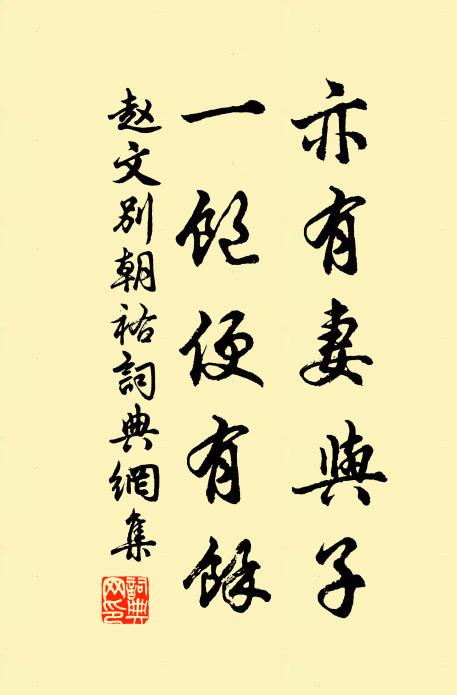 亦有妻與子
一飽便有餘
赵文别朝祐詞典網集
詞典网印